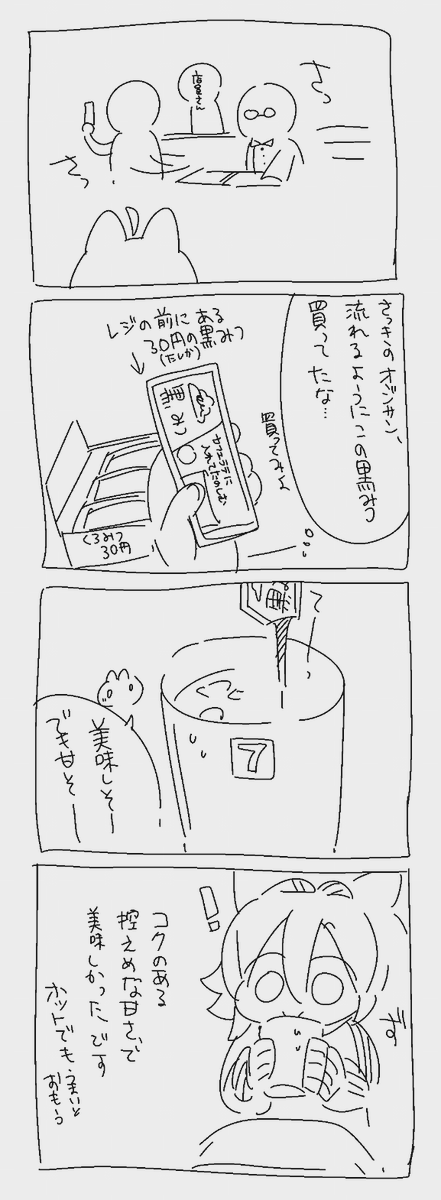 さっ
店員さん
さっ
さっきのオジサン、
流れるようにこの黒みつ
買ってたな…
レジの前にある
30円の黒みつ
(たしか)
黒みつ
カフェラテに
くろみつ
30円
買ってみよ
黒
7
美味しそー
でも甘そー
!
コクのある
控えめな甘さで
美味しかったです
ホットでもうまいと
おもう